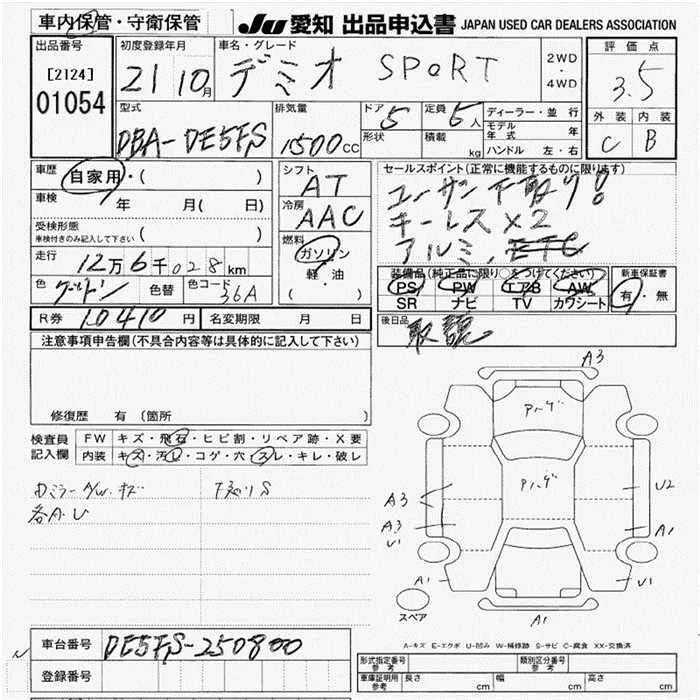 車内保管・守衛保管
JU 愛知 出品申込書 JAPAN USED CAR DEALERS ASSOCIATION
出品番号
[2124]
01054
初度登録年月
21 10月
車名・グレード
デミオ SPORT
2WD
・
4WD
評価点
3.5
外装 内装
C B
型式
DBA-DE5FS
排気量
1500cc
ドア 5
形状
定員 5人
積載 kg
ディーラー・並行
モデル年式 年
ハンドル 左・右
車歴
自家用・( )
車検 年 月( 日)
受検形態
車検付きのみ記入して下さい ( )
走行
12万6千028km
色 ゴールドン 色替 色コード 36A
シフト
AT
冷房
AAC
燃料
ガソリン
軽・油
( ・ )
セールスポイント(正常に機能するものに限ります)
ユーザー下取り!
キーレス×2
アルミ, ETC
装備品(純正品に限り○をつけてください)
PS PW エアB AW
SR ナビ TV カワシート
新車保証書
有・無
R券 10410円 名変期限 月 日
後日品
取説
注意事項申告欄(不具合内容等は具体的に記入して下さい)
修復歴 有 (箇所 )
検査員記入欄
FW キズ・飛石・ヒビ割・リペア跡・X要
内装 キズ・汚レ・コゲ・穴・スレ・キレ・破レ
各A.U
A3
A3
A3
U1
A1
U2
A1
U1
A1
スペア
A-キズ E-エクボ U-凹み W-補修跡 S-サビ C-腐食 XX-交換済
車台番号 DE5FS-250800
登録番号
形式指定番号 参考
類別区分番号 参考
車庫証明用 参考 長さ cm 幅 cm 高さ cm